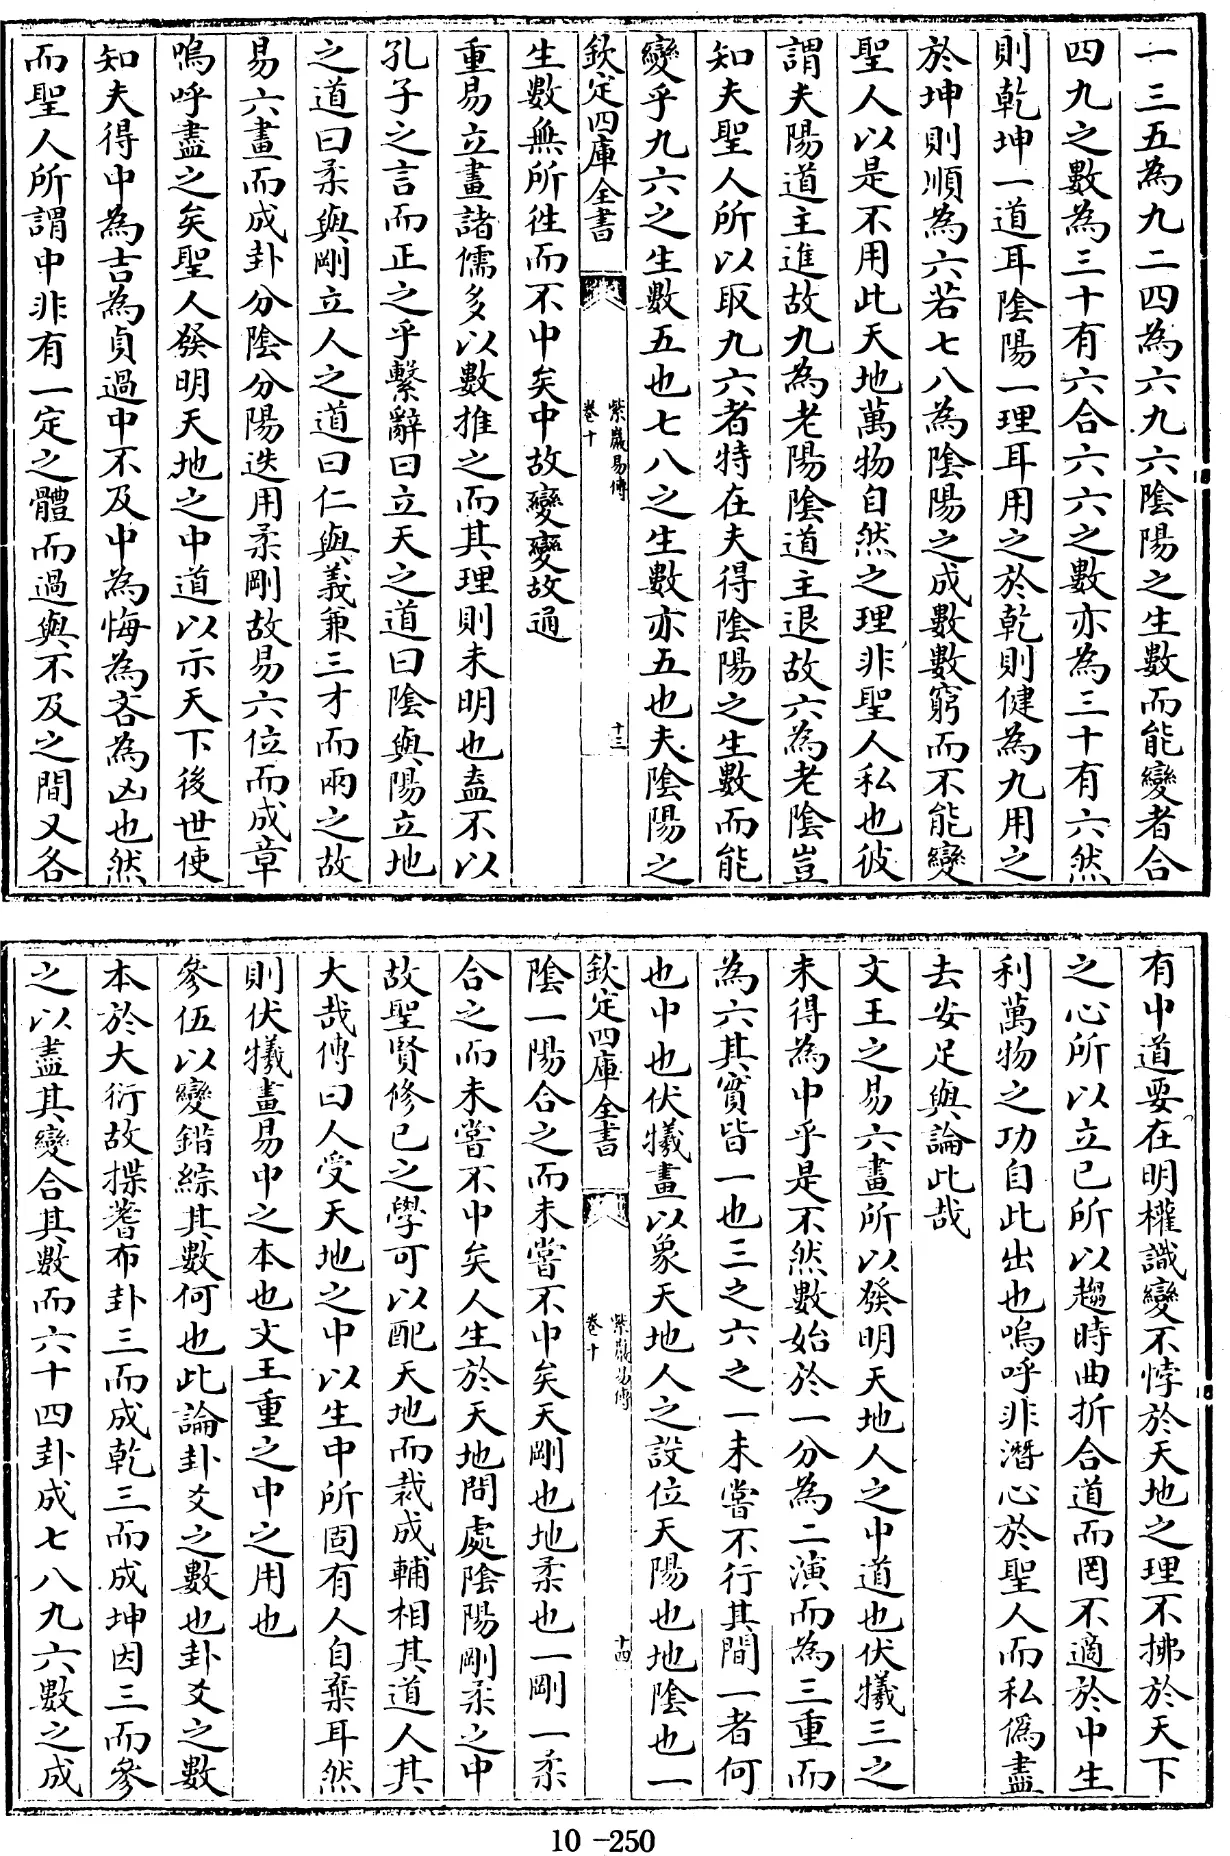 一三五為九二四為六九六陰陽之生數而能變者合
四九之數為三十有六合六六之數亦為三十有六然
則乾坤一道耳陰陽一理耳用之於乾則健為九用之
於坤則順為六若七八為陰陽之成數數窮而不能變
聖人以是不用此天地萬物自然之理非聖人私也彼
謂夫陽道主進故九為老陽陰道主退故六為老陰豈
知夫聖人所以取九六者特在夫得陰陽之生數而能
變乎九六之生數五也七八之生數亦五也夫陰陽之
欽定四庫全書
紫巖易傳
卷十
十三
生數無所往而不中矣中故變變故通
重易立畫諸儒多以數推之而其理則未明也盍不以
孔子之言而正之乎繫辭曰立天之道曰陰與陽立地
之道曰柔與剛立人之道曰仁與義兼三才而兩之故
易六畫而成卦分陰分陽迭用柔剛故易六位而成章
嗚呼盡之矣聖人發明天地之中道以示天下後世使
知夫得中為吉為貞過中不及中為悔為吝為凶也然
而聖人所謂中非有一定之體而過與不及之間又各
有中道要在明權識變不悖於天地之理不拂於天下
之心所以立已所以趨時曲折合道而罔不適於中生
利萬物之功自此出也嗚呼非潛心於聖人而私偽盡
去安足與論此哉
文王之易六畫所以發明天地人之中道也伏犧三之
未得為中乎是不然數始於一分為二演而為三重而
為六其實皆一也三之六之一未嘗不行其間一者何
也中也伏犧畫以象天地人之設位天陽也地陰也一
欽定四庫全書
紫巖易傳
卷十
十四
陰一陽合之而未嘗不中矣天剛也地柔也一剛一柔
合之而未嘗不中矣人生於天地間處陰陽剛柔之中
故聖賢修已之學可以配天地而裁成輔相其道人其
大哉傳曰人受天地之中以生中所固有人自棄耳然
則伏犧畫易中之本也文王重之中之用也
參伍以變錯綜其數何也此論卦爻之數也卦爻之數
本於大衍故揲蓍布卦三而成乾三而成坤因三而參
之以盡其變合其數而六十四卦成七八九六數之成
10-250